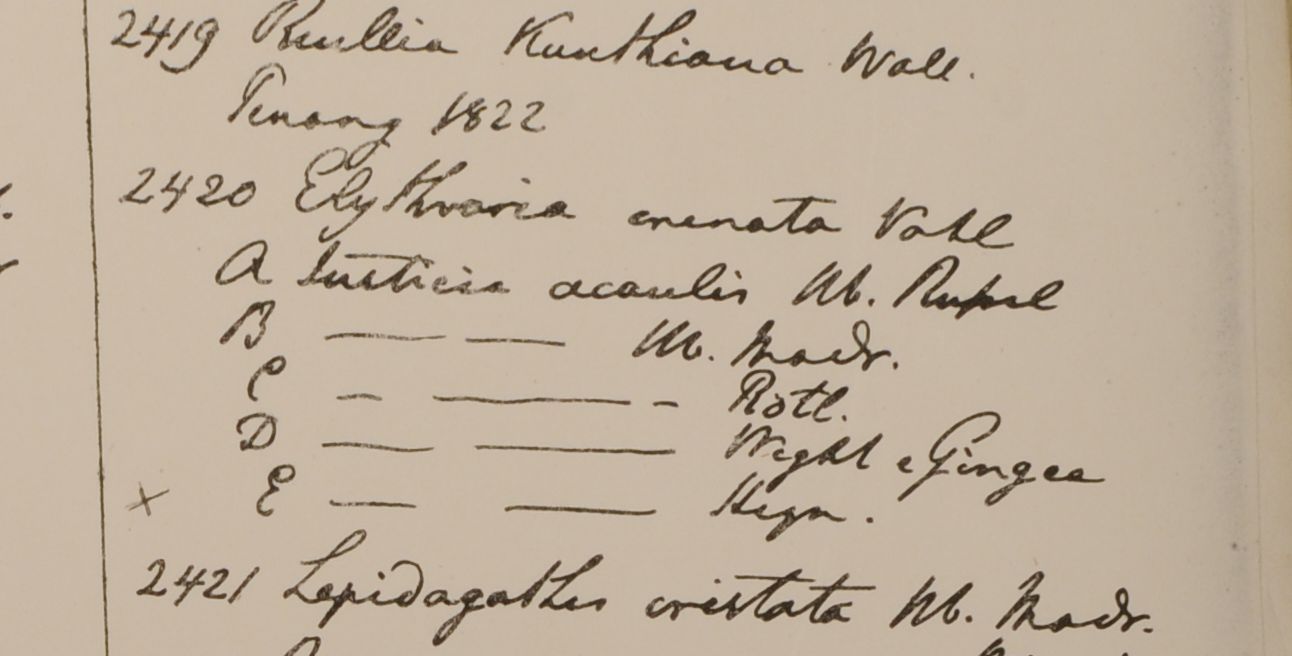 2419 Ruellia Kunthiana Wall.
Penang 1822
2420 Elytraria crenata Vahl
A Justicia acaulis Hb. Russel
B — — Hb. Madr.
C - — - Rotl.
D — — Wight e Gingee
x E — — Heyn.
2421 Lepidagathis cristata Hb. Madr.